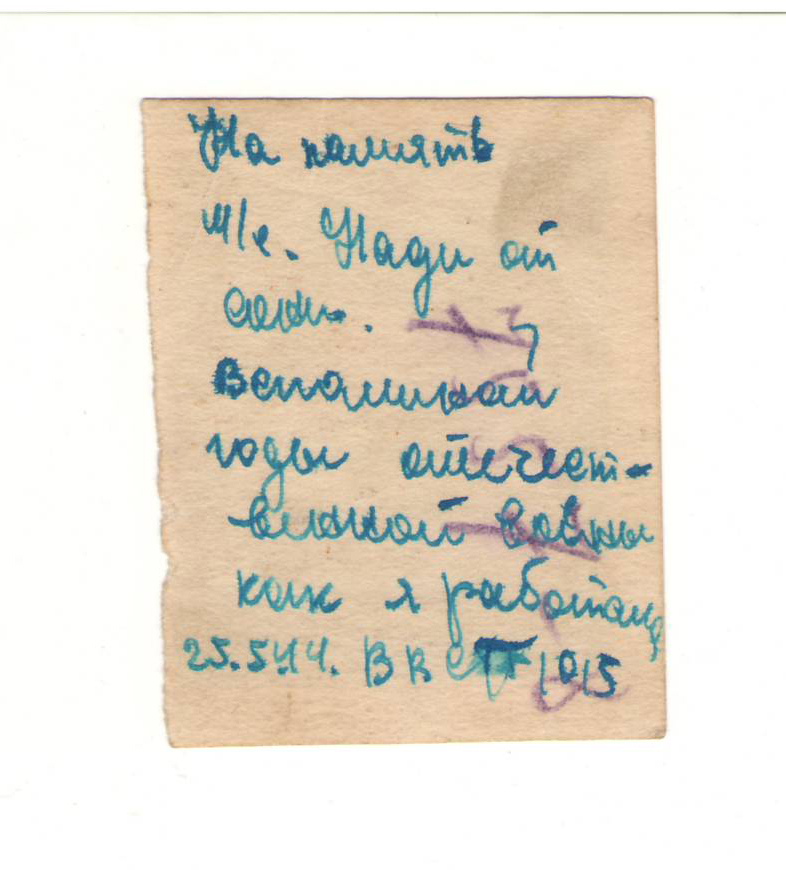 На память
М/с. Нади от
Вспоминай
годы отечест-
венной войны
как я работала
25.5.44. В В 1015